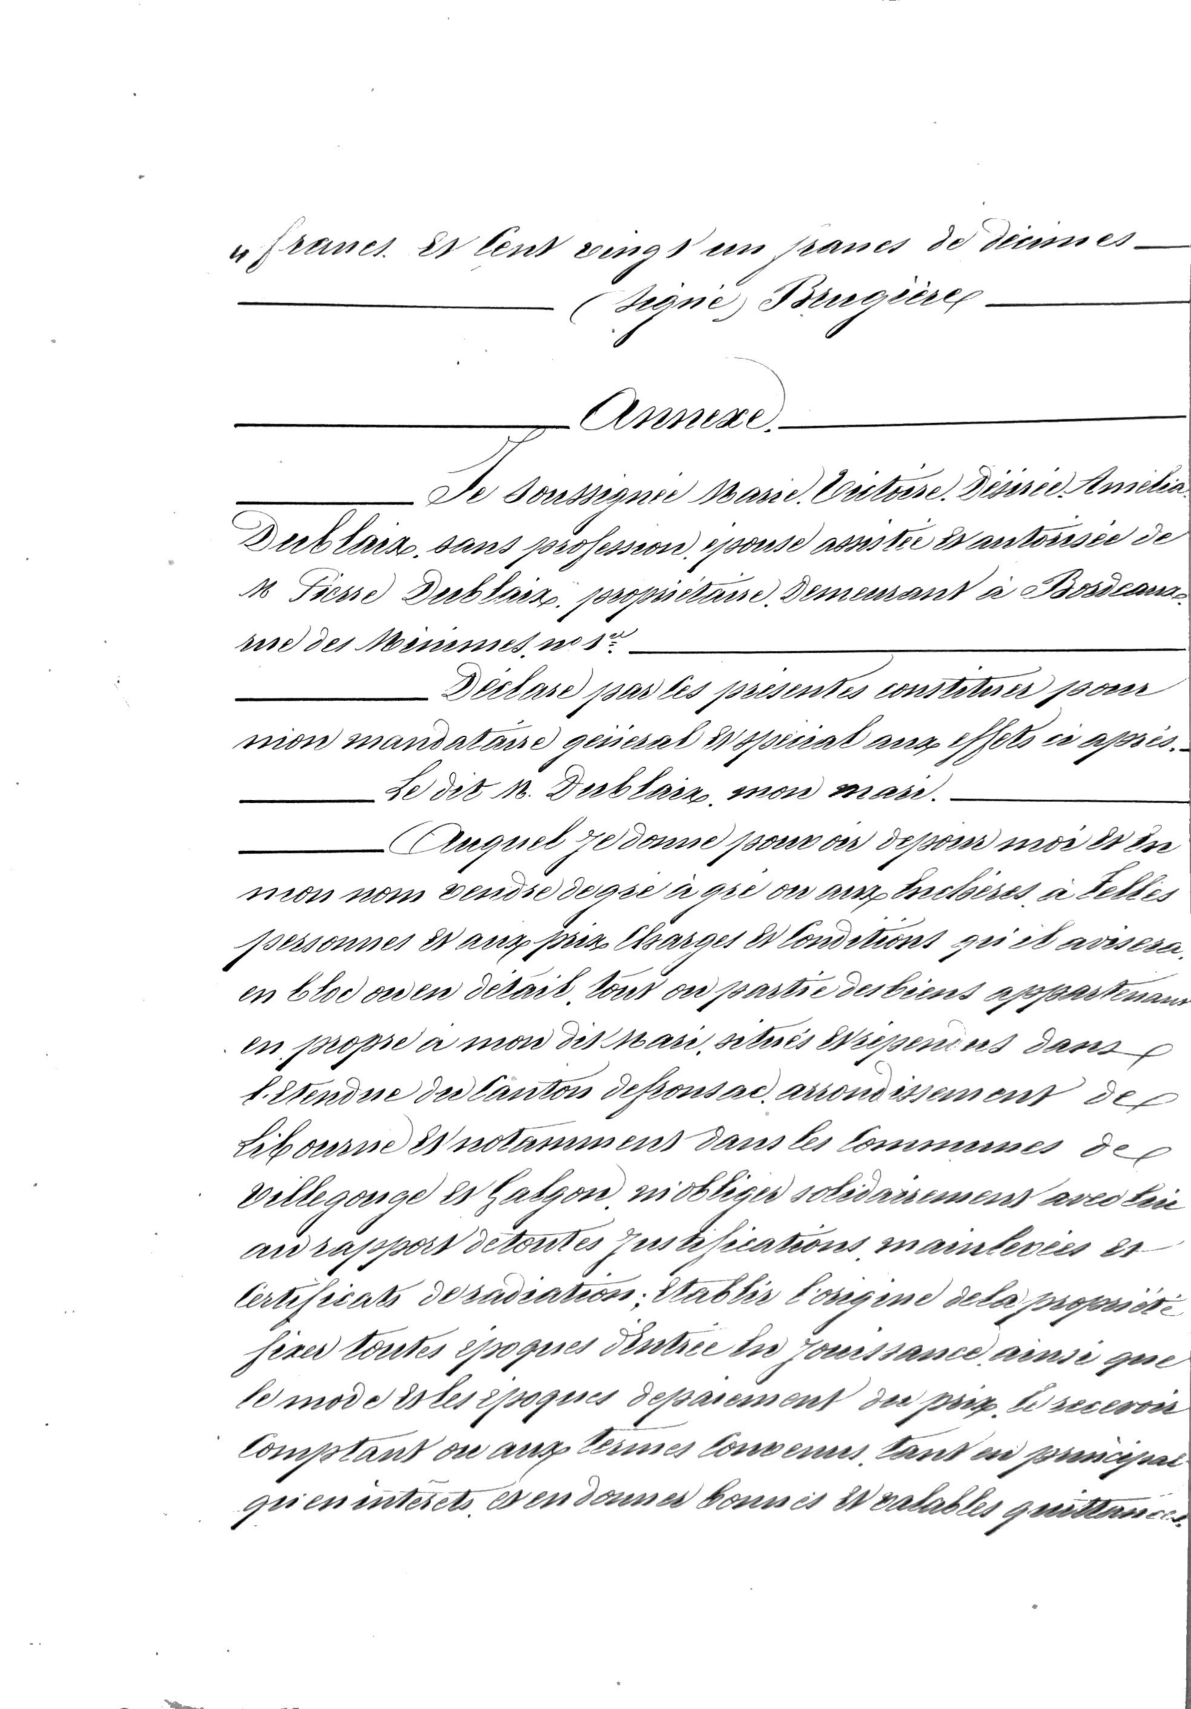 " francs. Et Cent vingt un francs de décimes
(signé) Brugière
Annexe.
Je soussignée Marie, Victoire, Désirée, Amélia
Dublaix, sans profession, épouse assistée et autorisée de
M Pierre Dublaix, propriétaire, Demeurant à Bordeaux
rue des Minimes, no 1er
Déclare par les présentes constituer pour
mon mandataire général et spécial aux effets ci après.
Le dit M. Dublaix, mon mari.
Auquel Je donne pouvoir de pour moi et En
mon nom vendre de gré à gré ou aux Enchères, à telles
personnes et aux prix Charges et Conditions qu'il avisera,
en bloc ou en détail, tout ou partie des biens appartenant
en propre à mon dit Mari, situés et répendus dans
l'Etendue du Canton de fronsac, arrondissement de
Libourne et notamment dans les Communes de
Villegouge et Galgon, m'obliger solidairement avec lui
au rapport de toutes Justifications, mainlevées et
Certificats de radiation; Etablir l'origine de la propriété
fixer toutes époques d'Entrée En Jouissance, ainsi que
le mode et les époques de paiement du prix, le recevoir
Comptant ou aux termes Convenus, tant en principal
qu'en intérêts, et en donner bonnes et valables quittances.